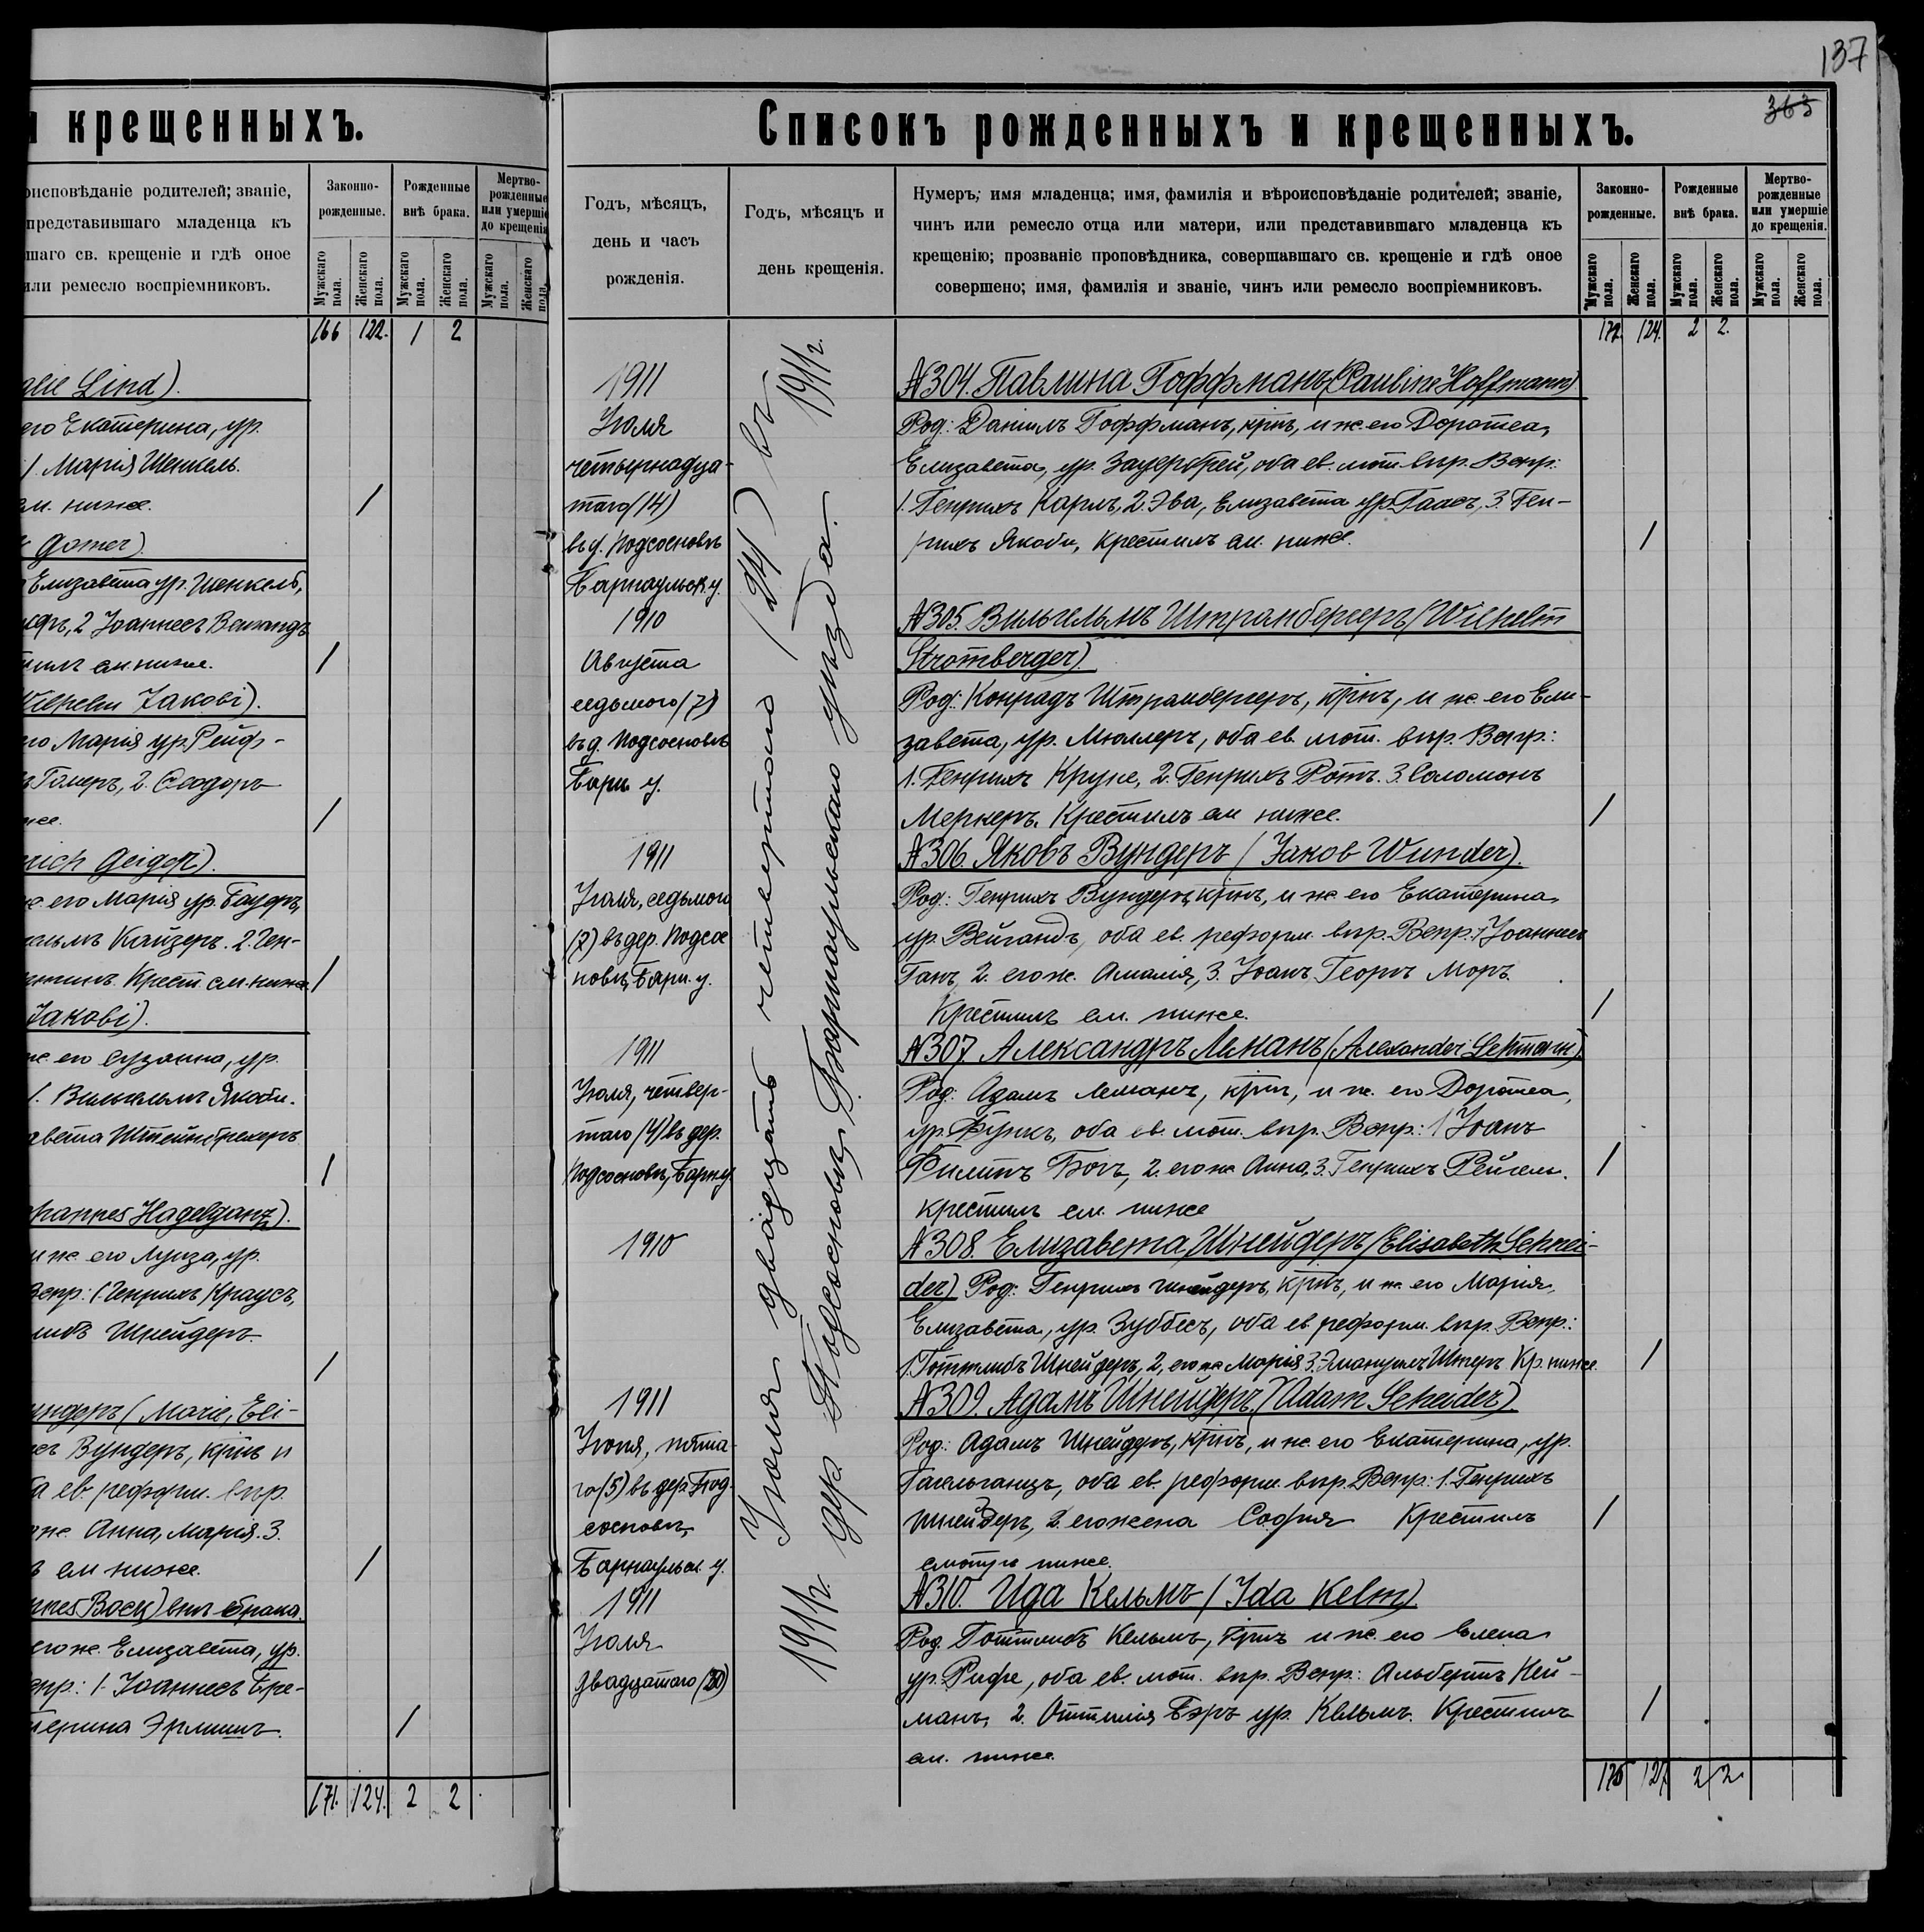 137
363
и крещенныхъ.
рисповѣданіе родителей; званіе,
представившаго младенца къ
шаго св. крещеніе и гдѣ оное
или ремесло воспріемниковъ.
Законно-
рожденные.
Рожденные
внѣ брака.
Мертво-
рожденные
или умершіе
до крещенія
Мужскаго пола.
Женскаго пола.
Мужскаго пола.
Женскаго пола.
Мужскаго пола.
Женскаго пола.
166 122. 1 2
alie Lind).
его Екатерина, ур.
). Марія Шенкель.
см. ниже. /
Gomer)
Елизавета ур. Шенкель,
2 Іоаннесъ Вейгандъ
см. ниже. /
Wilhelm Jакоbi).
его Марія ур. Рейф-
Гомеръ, 2. Ѳеодоръ
ниже. /
rich Geiger).
же его Марія ур. Бауеръ,
Кайзеръ. 2. Ген-
Крест. см. ниже /
Jакоbi).
же его Сузанна, ур.
1. Вильгельмъ Якоби.
авета Штейнбрехеръ
/
ohannes Hagelganz).
и же его Луиза, ур.
Вспр: 1. Генрихъ Краусъ,
либъ Шнейдеръ
/
ундеръ (Marie, Eli-
Вундеръ, крнъ и
а ев. реформ. впр.
же Анна, Марія. 3.
см ниже. /
внѣ брака
его же. Елизавета, ур.
спр: 1. Іоаннесъ Бре-
терина Эрлихъ. /
171. 124. 2 2
Списокъ рожденныхъ и крещенныхъ.
Годъ, мѣсяцъ,
день и часъ
рожденія.
Годъ, мѣсяцъ и
день крещенія.
Нумеръ; имя младенца; имя, фамилія и вѣроисповѣданіе родителей; званіе,
чинъ или ремесло отца или матери, или представившаго младенца къ
крещенію; прозваніе проповѣдника, совершавшаго св. крещеніе и гдѣ оное
совершено; имя, фамилія и званіе, чинъ или ремесло воспріемниковъ.
Законно-
рожденные.
Рожденные
внѣ брака.
Мертво-
рожденные
или умершіе
до крещенія.
Мужскаго пола.
Женскаго пола.
Мужскаго пола.
Женскаго пола.
Мужскаго пола.
Женскаго пола.
172. 124. 2 2.
Іюля двадцать четвертого (24) въ 1911 г.
1911 г. дер. Подсосновкѣ, Барнаульскаго уѣзда.
1911
Іюля
четырнадца-
таго (14)
въ д. Подсосновкѣ
Барнаульск. у.
№304. Павлина Гоффманъ (Pauline Hoffmann)
Род: Даніилъ Гоффманъ, крнъ, и же его Доротеа,
Елизавета, ур. Зауербрей, оба ев. лют. впр. Вспр:
1. Генрихъ Карлъ, 2. Эва, Елизавета ур. Гаасъ, 3. Ген-
рихъ Якоби, Крестилъ см. ниже. /
1910
Августа
седьмого (7)
въ д. Подсосновкѣ
Барн. у.
№305. Вильгельмъ Штрамбергеръ (Wilhelm
Stromberger)
Род: Конрадъ Штрамбергеръ, крнъ, и же его Ели-
завета, ур. Мюллеръ, оба ев. лют. впр. Вспр:
1. Генрихъ Крупе, 2. Генрихъ Ротъ. 3. Соломонъ
Меркеръ. Крестилъ см ниже. /
1911
Іюля, седьмого
(7) въ дер. Подсос
новкѣ, Барн. у.
№306. Яковъ Вундеръ (Jакоb Wunder).
Род: Генрихъ Вундеръ, крнъ, и же его Екатерина,
ур. Вейгандъ, оба ев. реформ. впр. Вспр. 1 Іоаннесъ
Ганъ, 2. его ж. Амалія, 3. Іоанъ Георгъ Моръ.
Крестилъ см. ниже. /
1911
Іюля, четвер-
таго (4) въ дер.
Подсосновкѣ, Барн. у.
№307 Александръ Леманъ (Alexander Lehmann)
Род: Адамъ Леманъ, крнъ, и же его Доротеа,
ур. Функъ, оба ев. лют. впр. Вспр: 1 Іоанъ
Филиппъ Богъ, 2. его же Анна, 3. Генрихъ Рейгель. /
крестилъ см. ниже
1910
№308. Елизавета Шнейдеръ (Elisabeth Schnei-
der) Род: Генрихъ Шнейдеръ, крнъ, и же его Марія,
Елизавета, ур. Зуббесъ, оба ев. реформ. впр. Вспр:
1. Готтлибъ Шнейдеръ, 2, его же Марія 3. Эмануилъ Кр. ниже. /
1911
Іюня, пята-
го (5) въ дер. Под-
сосновкѣ,
Барнаульск. у.
№309. Адамъ Шнейдеръ. (Adam Schneider)
Род: Адамъ Шнейдеръ, крнъ, и же его Екатерина, ур.
Гагельганцъ, оба ев. реформ. впр. Вспр: 1. Генрихъ
Шнейдеръ, 2. его жена София Крестилъ /
смотри ниже.
1911
Іюля
двадцатого (20)
№310. Ида Кельмъ (Ida Kelm)
Род. Готтлибъ Кельмъ, крнъ и же его Елена
ур. Рафе, оба ев. лют. впр. Вспр: Альбертъ Ней-
манъ, 2. Оттилія Бэръ ур. Кельмъ. Крестилъ /
см. ниже.
176 127 2 2